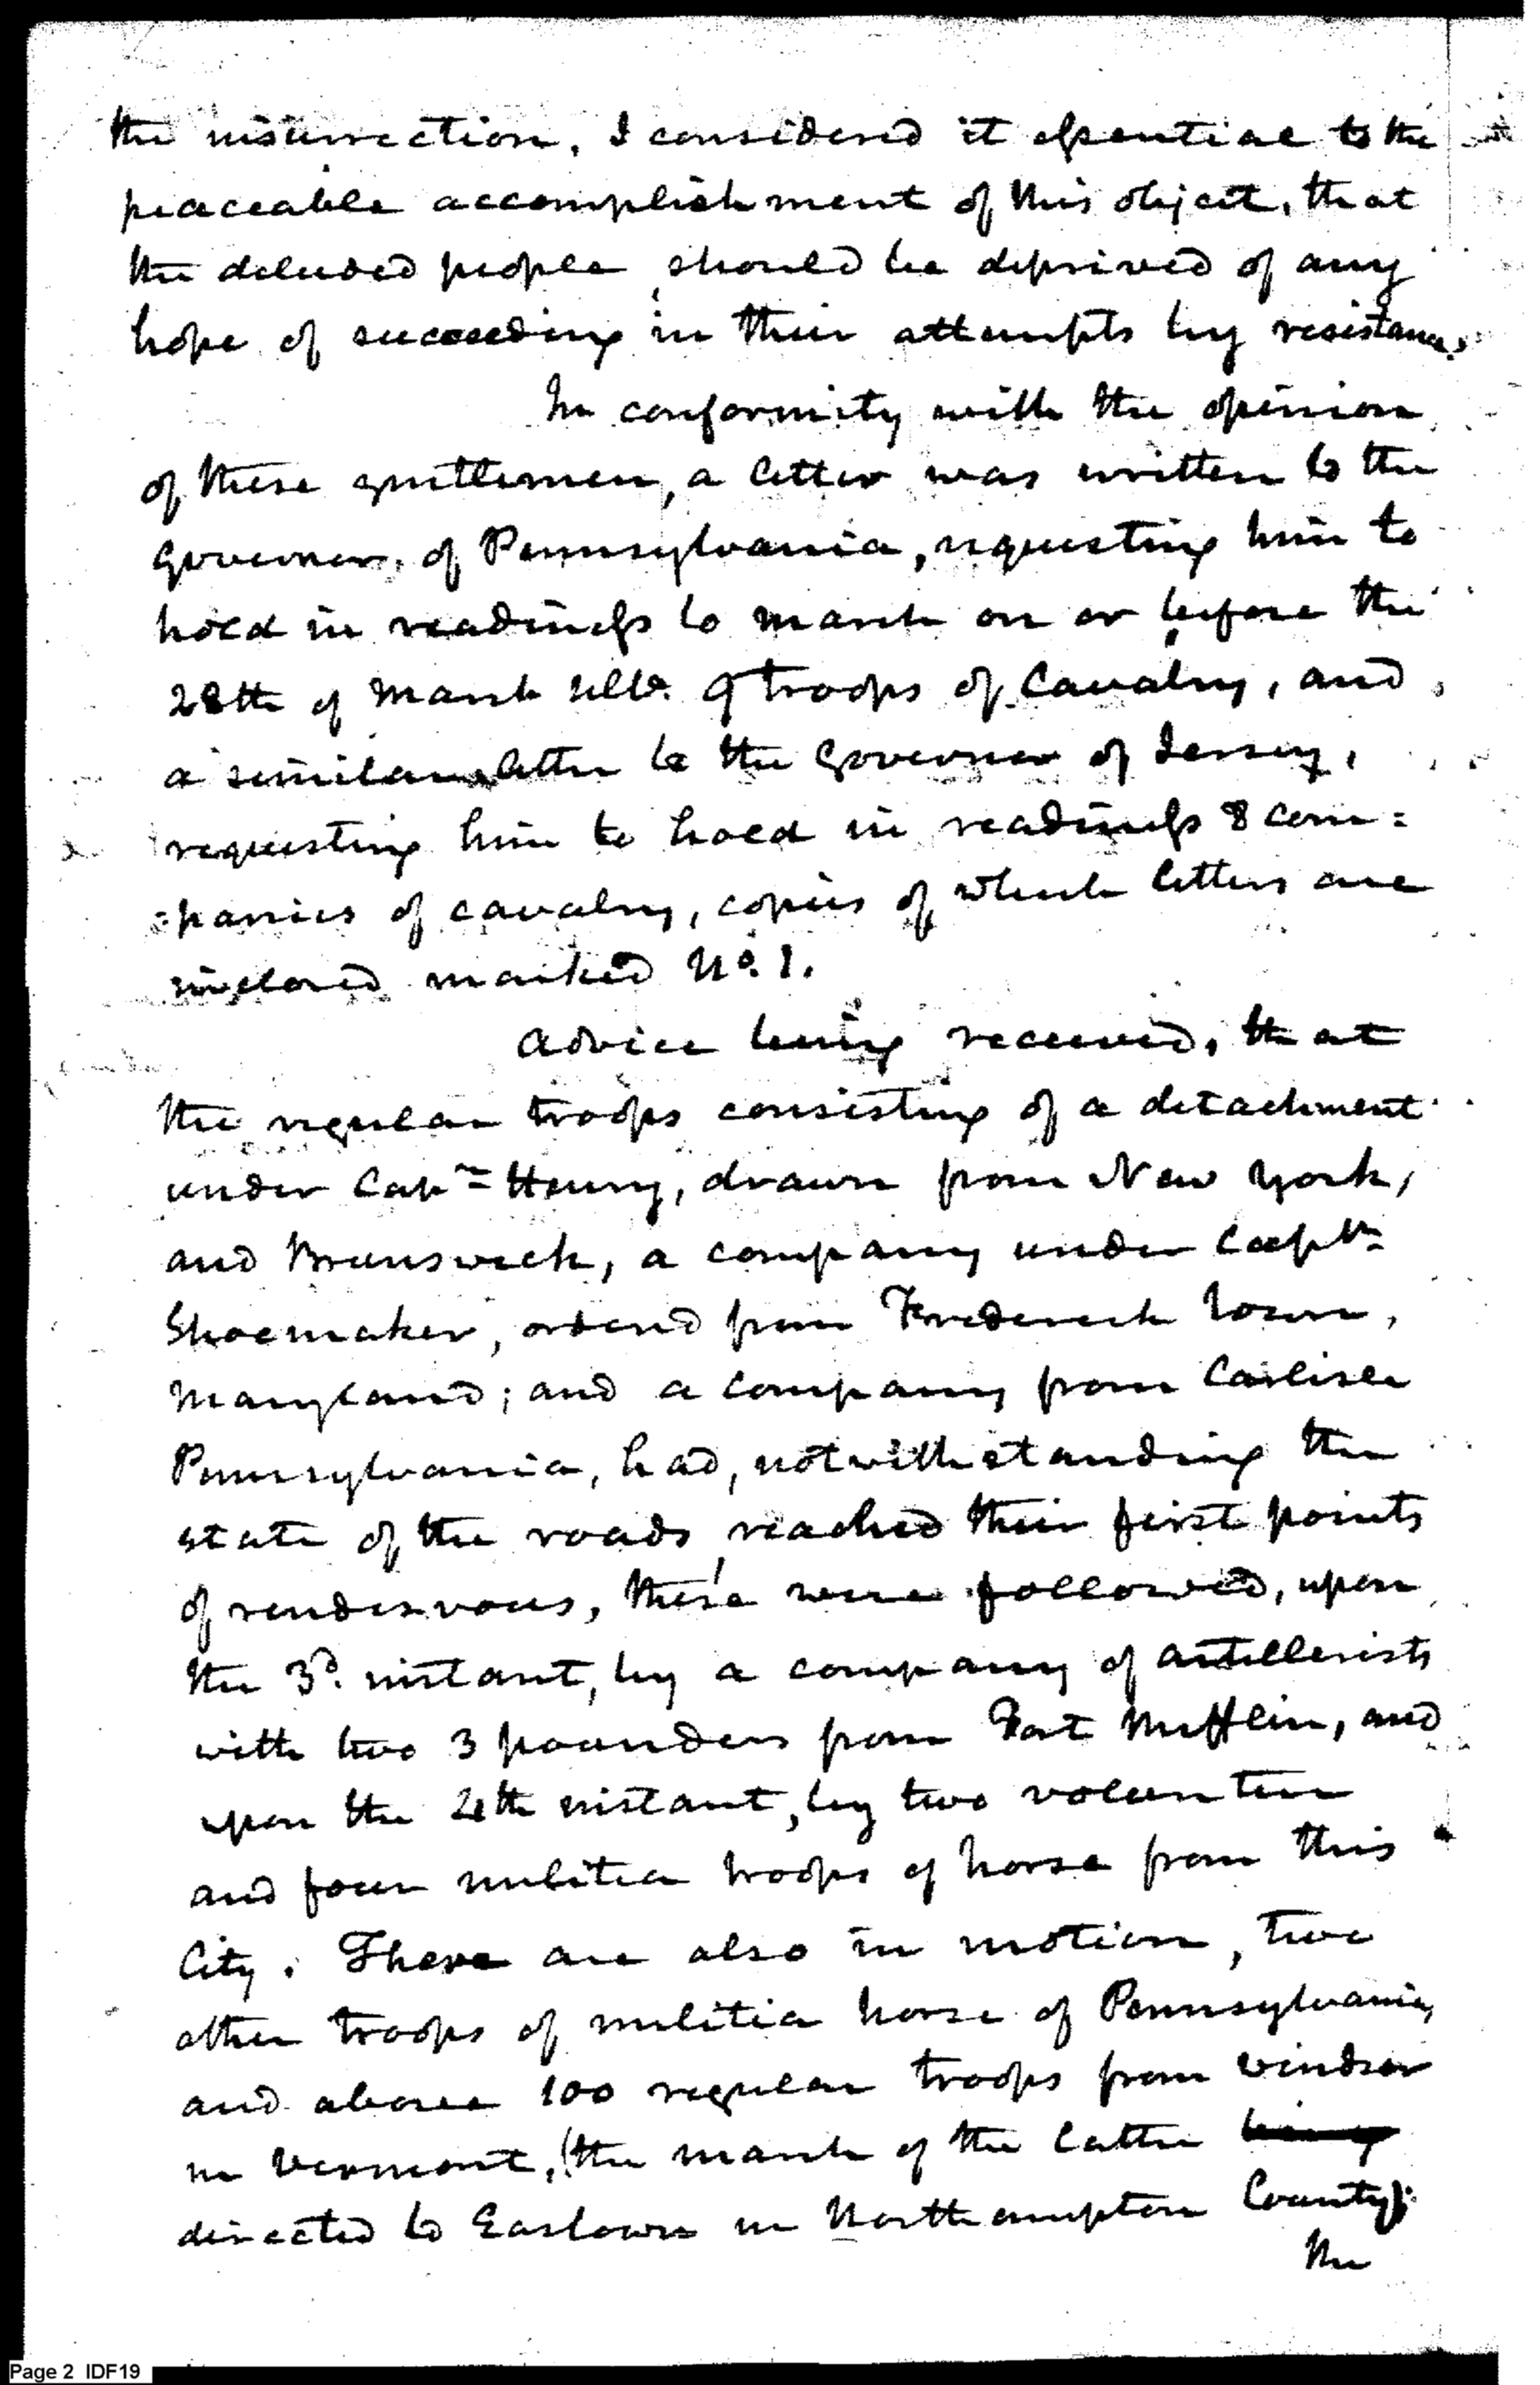 the insurrection, I considered it essential to the
peaceable accomplishment of this object, that
the deluded people should be deprived of any
hope of succeeding in their attempts by resistance.
In conformity with the opinion
of these gentlemen, a letter was written to the
Governor, of Pennsylvania, requesting him to
hold in readiness to march on or before the
28th of March ulto. 9 troops of Cavalry, and
a similar letter to the Governor of Jersey,
requesting him to hold in readiness 8 com=
=panies of cavalry, copies of which letters are
inclosed marked No. 1.
Advice being received, that
the regular troops consisting of a detachment
under Capn= Henry, drawn from New York,
and Brunswick, a company under Captn=
Shoemaker, ordered from Frederick Town,
Maryland; and a company from Carlisle
Pennsylvania, had, notwithstanding the
state of the roads, reached their first points
of rendezvous, these were followed, upon
the 3d. instant, by a company of artillerists
with two 3 pounders from Fort Mifflin, and
upon the 4th instant, by two volunteer
and four militia troops of horse from this
City. There are also in motion, two
other troops of militia horse of Pennsylvania,
and above 100 regular troops from Windsor
in Vermont, (the march of the latter being
directed to Eastown in Northampton County);
the
Page 2 IDF19